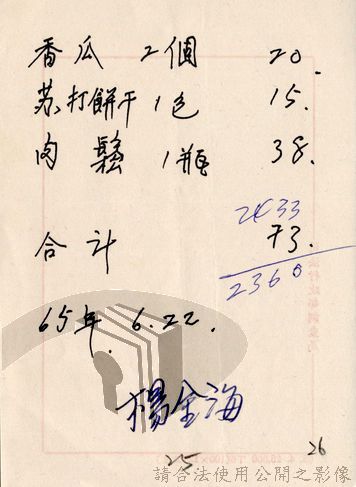 香瓜 2個 20.
苏打餅干 1包 15.
肉鬆 1瓶 38.
2433
合計 73.
2360
65年. 6.22.
楊金海
25 26
請合法使用公開之影像